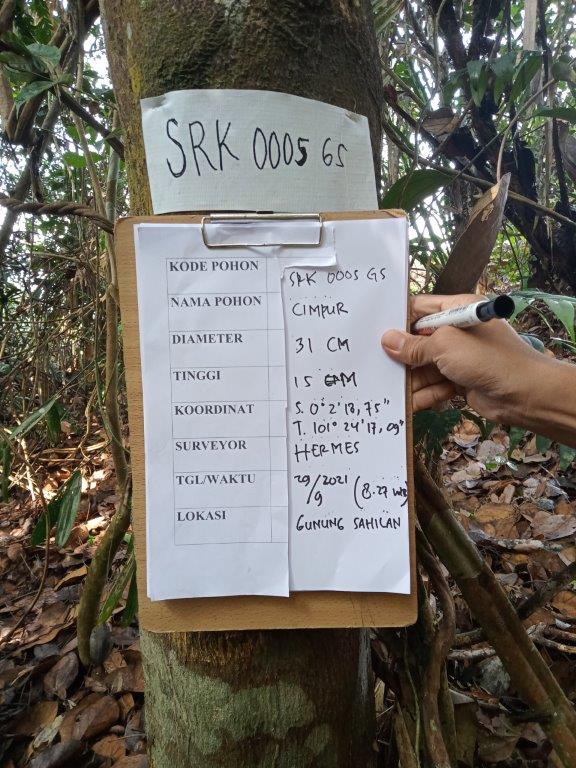 SRK 0005 GS
KODE POHON SRK 0005 GS
NAMA POHON CIMPUR
DIAMETER 31 CM
TINGGI 15 M
KOORDINAT S. 0° 2' 18,75"
T. 101° 24' 17,09"
SURVEYOR HERMES
TGL/WAKTU 20/9 2021 (8.27 WIB
LOKASI GUNUNG SAHILAN